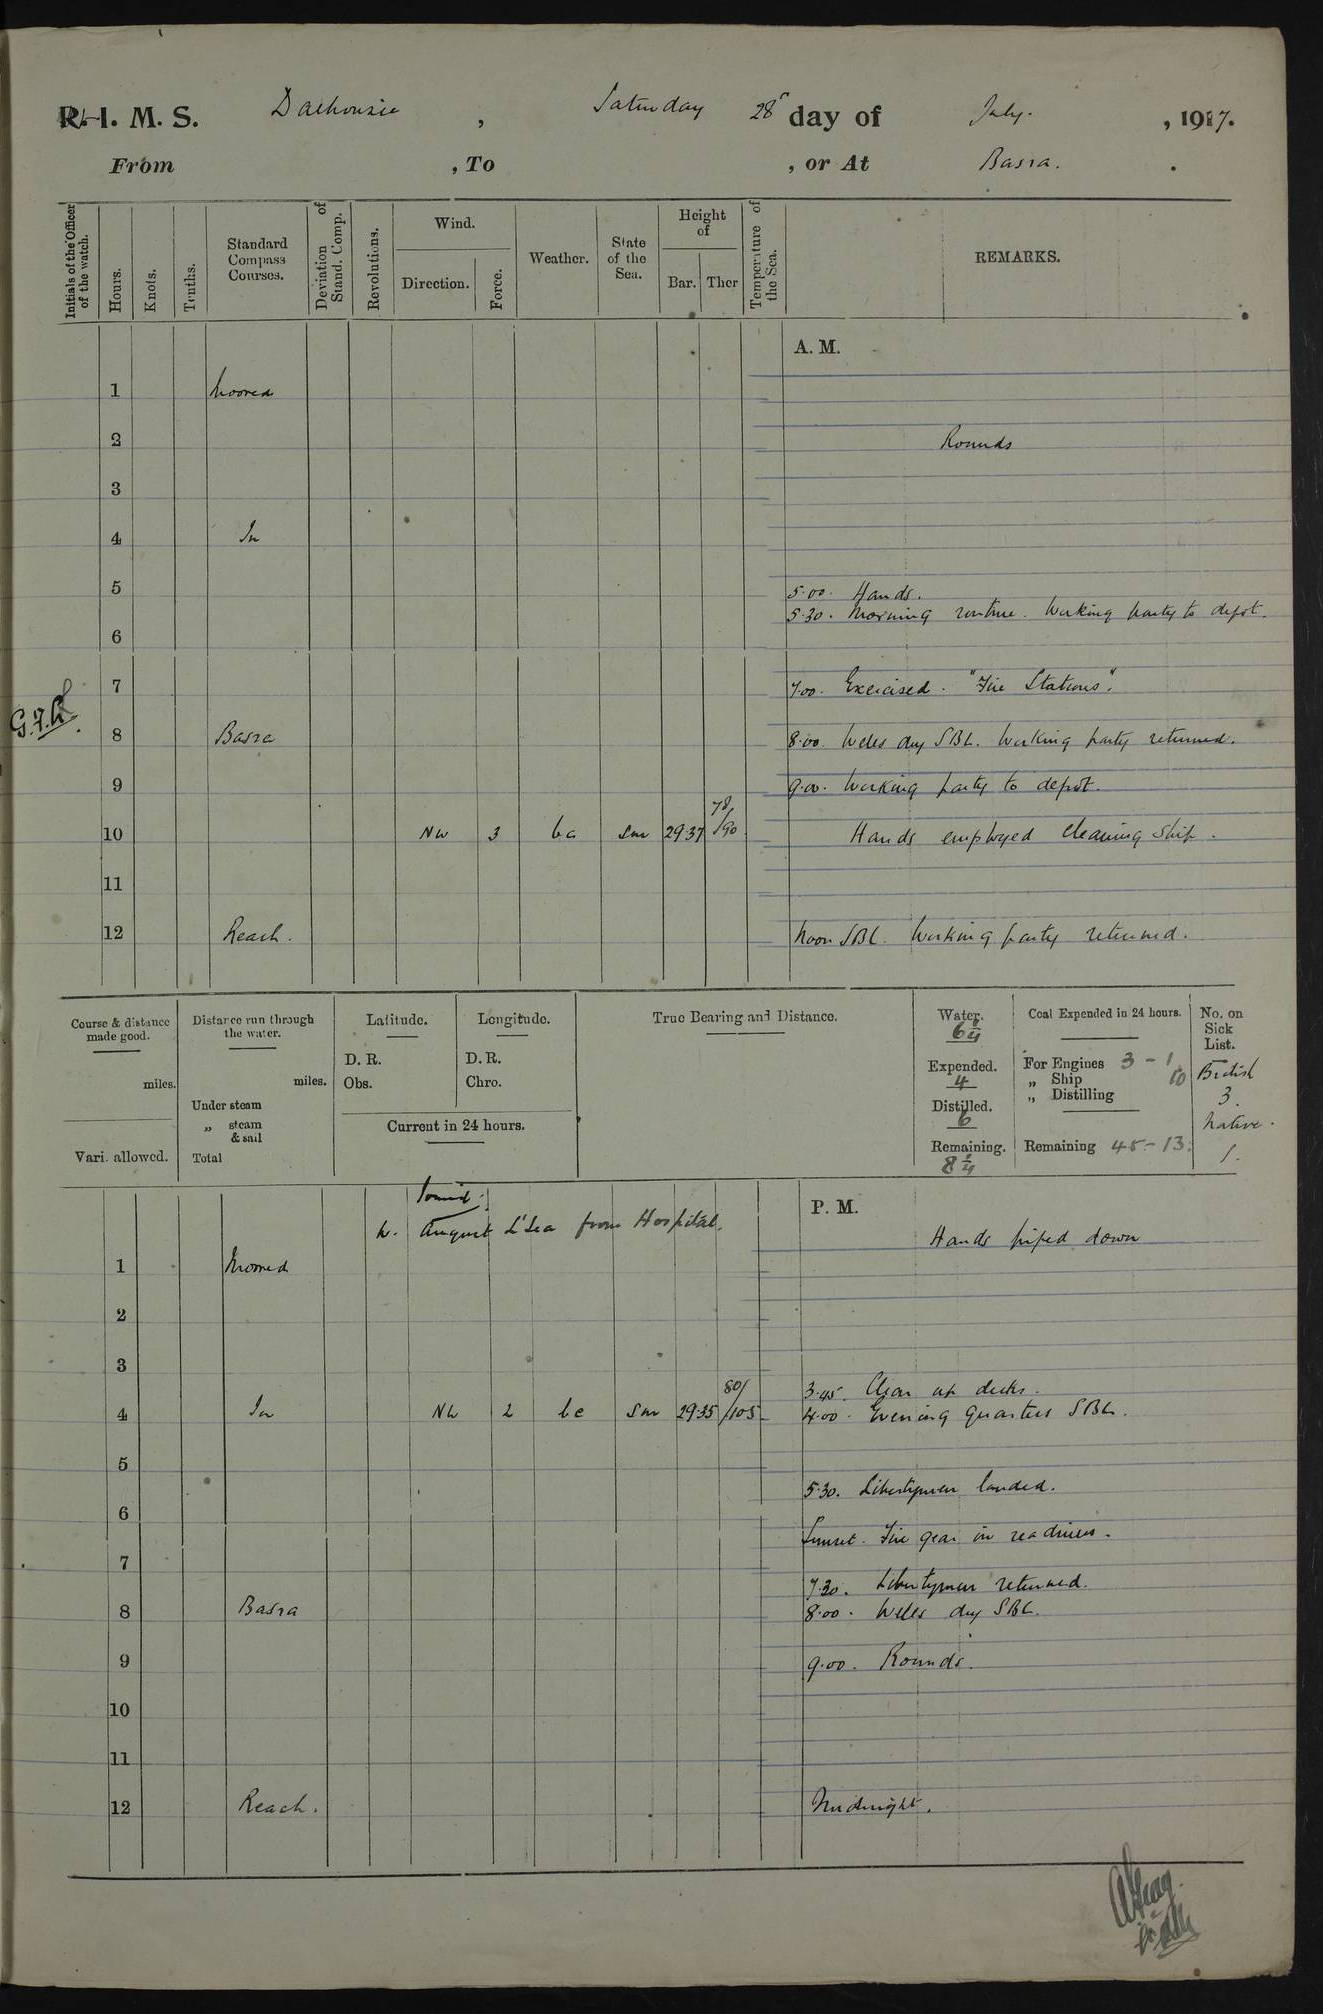 R. I. M. S. Dalhousie , Saturday 28 day of July. , 1917.
From , To , or At Basra. .
Initials of the Officer of the watch.
Hours.
Knots.
Tenths.
Standard Compass Courses.
Deviation of Stand. Comp.
Revolutions.
Wind.
Direction.
Force.
Weather.
State of the Sea.
Height of
Bar. Ther
Temperature of the Sea.
REMARKS.
A. M.
1 Moored
2 Rounds
3
4 In
5 5.00. Hands.
5.30. Morning routine. Working party to depot.
6
7 7.00. Exercised. "Fire Stations".
8 Basra 8.00. Wells dry SBL. Working party returned.
9 9.00. Working party to depot.
10 NW 3 bc Sm 29.37 78/90 Hands employed cleaning ship.
11
12 Reach. Noon SBL. Working party returned.
Course & distance made good.
miles.
Vari. allowed.
Distance run through the water.
miles.
Under steam
„ steam & sail
Total
Latitude.
D. R.
Obs.
Longitude.
D. R.
Chro.
Current in 24 hours.
True Bearing and Distance.
Water.
Expended.
4
Distilled.
6
Remaining.
Coal Expended in 24 hours.
For Engines 3 - 1
„ Ship 10
„ Distilling
Remaining 45 - 13.
No. on Sick List.
British
3.
Native.
1.
P. M.
August from Hospital.
Hands piped down
1 Moored
2
3
3.45. Clear up decks.
4 In NW 2 bc Sm 29.35 80/105 4.00. Evening Quarters SBL.
5
5.30. Libertymen landed.
6
Sunset. Fire gear in readiness.
7
7.30. Libertymen returned.
8 Basra 8.00. Wells dry SBL.
9 9.00. Rounds.
10
11
12 Reach. Midnight.